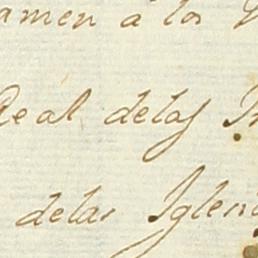 amen à los
Real delas
delas Igles